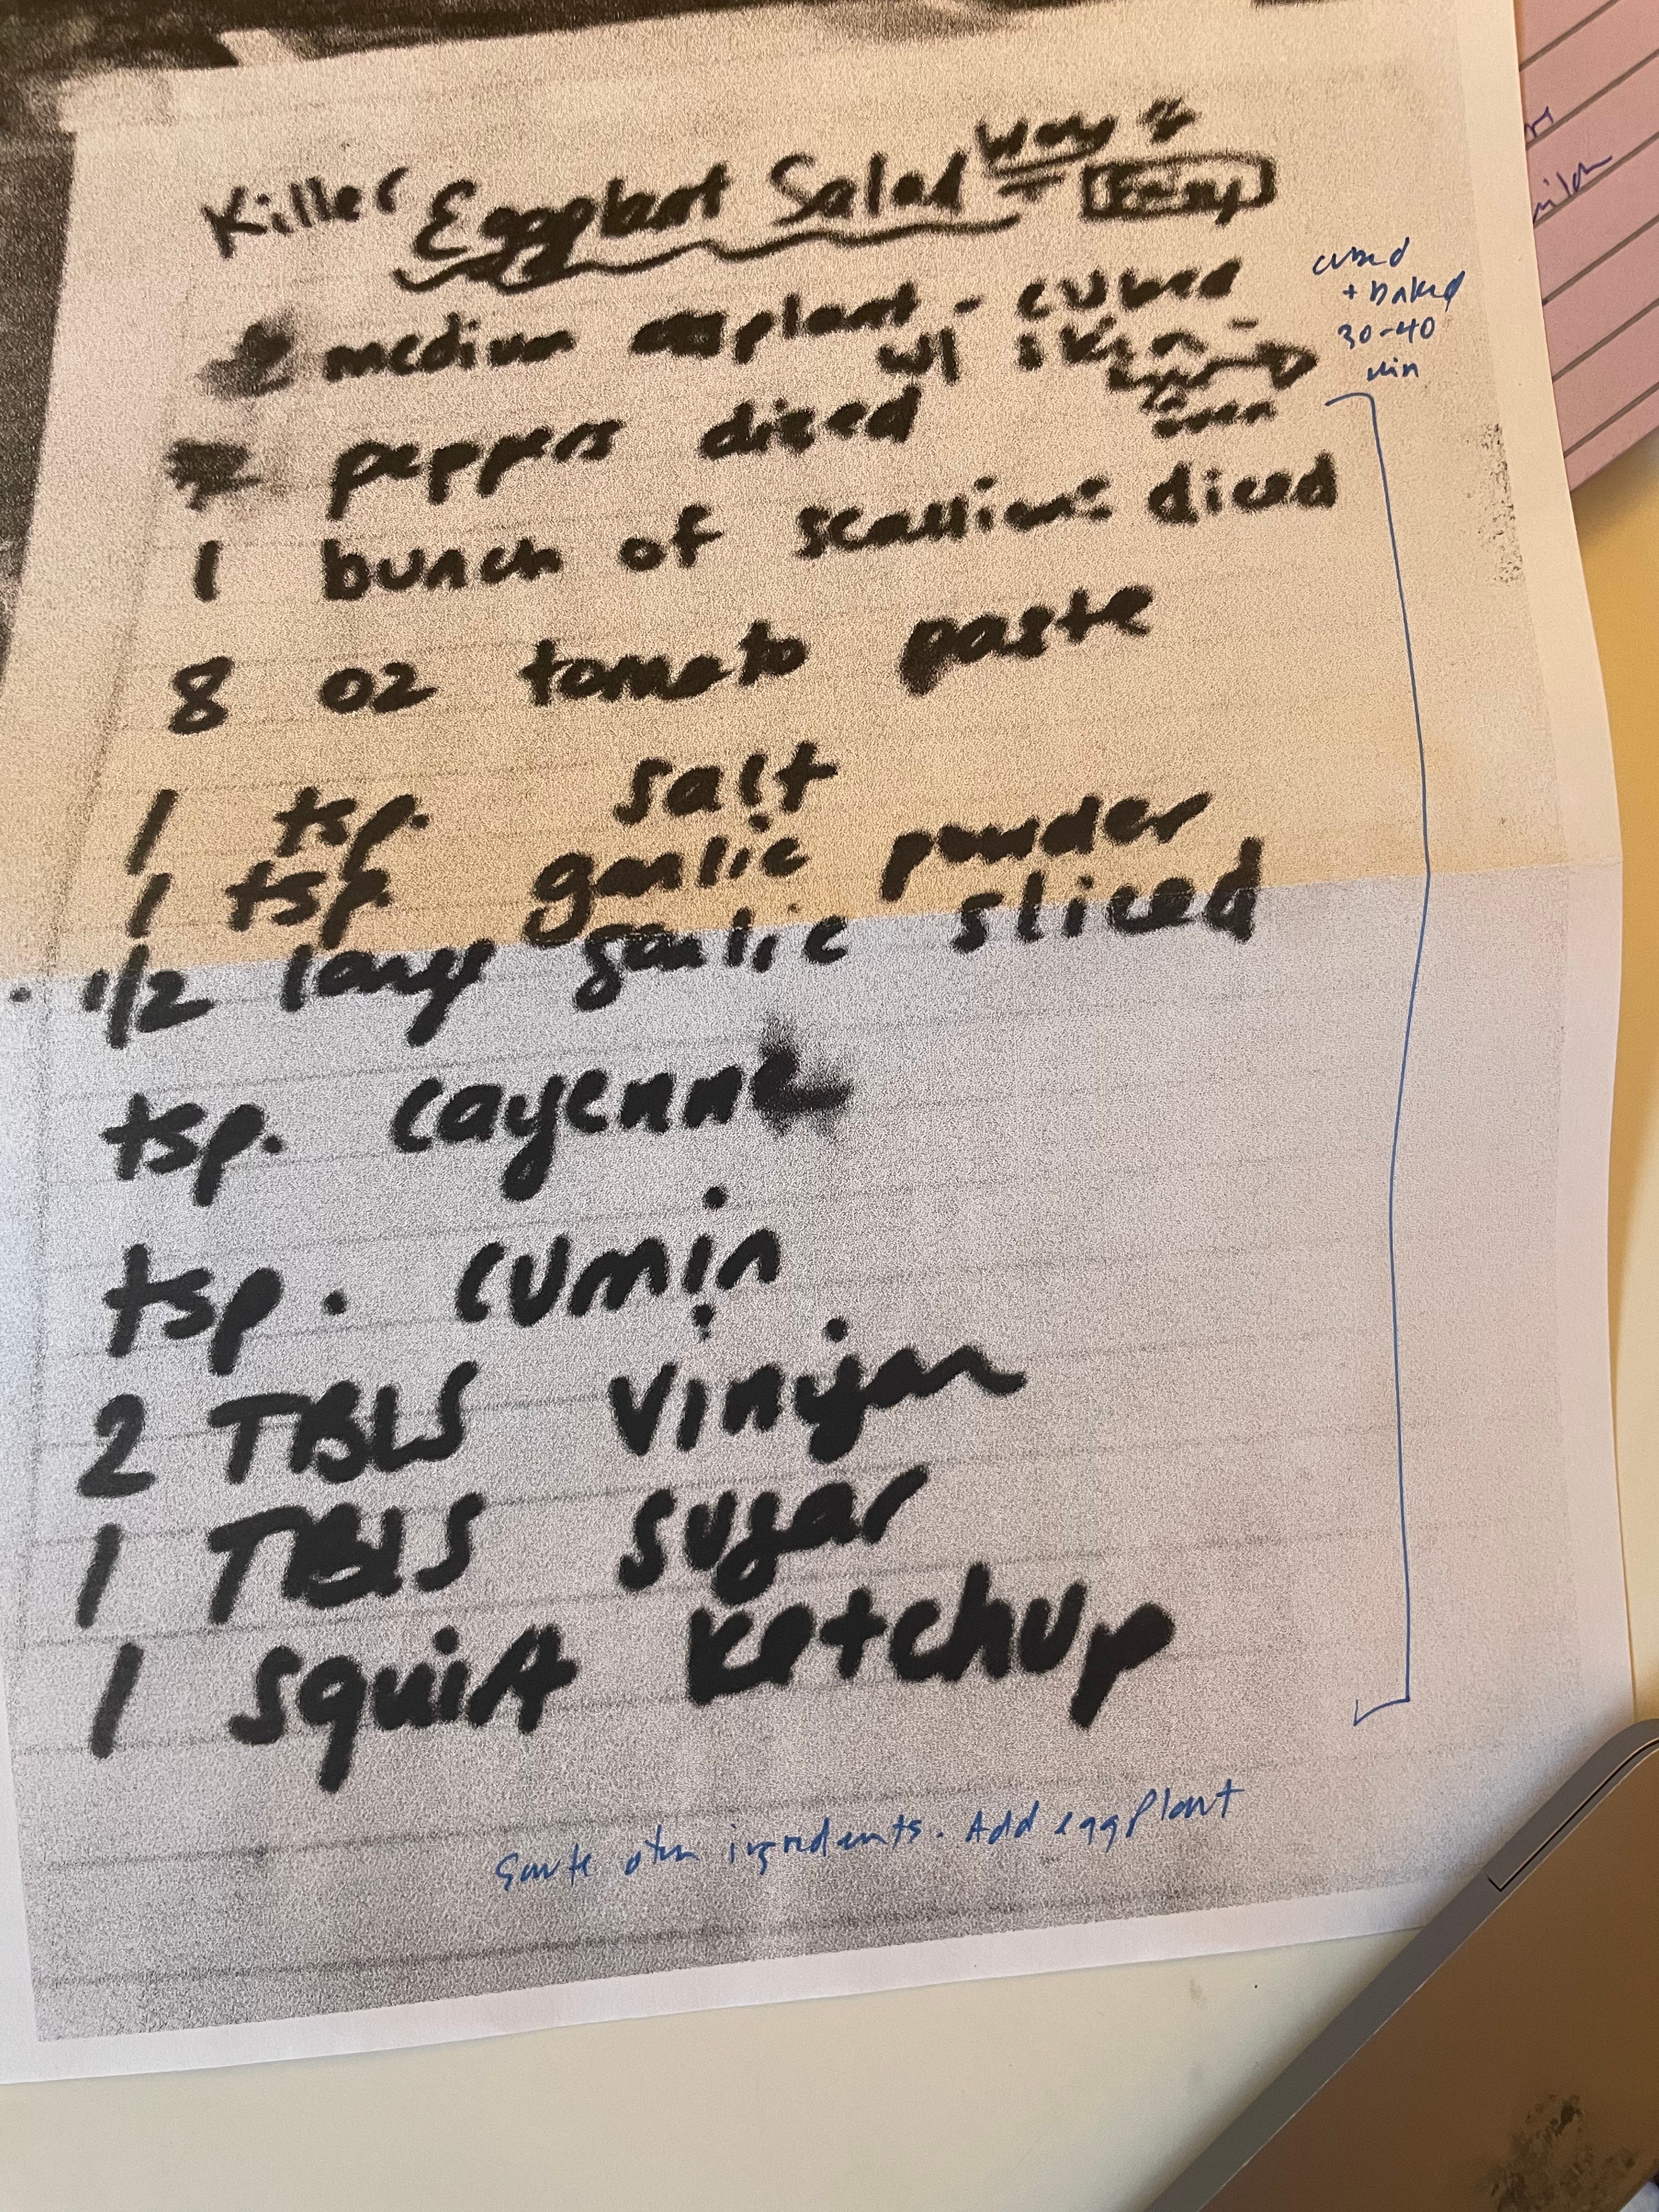 Killer Eggplant Salad Way
medium eggplant - cubed
w/ skin -
oven
cubed
+ baked
30-40
min
peppers diced
1 bunch of scallions diced
8 oz tomato paste
1 tsp. salt
1 tsp. garlic powder
1/2 garlic sliced
tsp. cayenne
tsp. cumin
2 TBLS vinigar
1 TBLS sugar
1 squirt ketchup
Saute other ingredients. Add eggplant